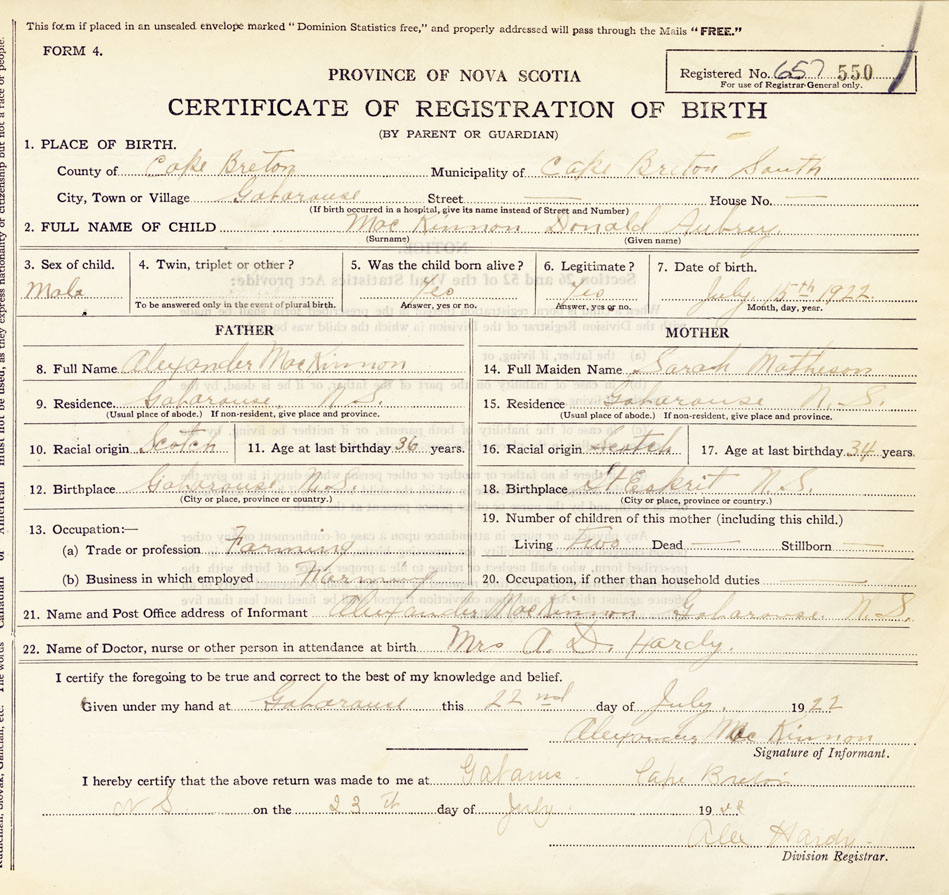 This form if placed in an unsealed envelope marked "Dominion Statistics free," and properly addressed will pass through the Mails "FREE."
FORM 4.
Registered No. 657 550
For use of Registrar-General only.
PROVINCE OF NOVA SCOTIA
CERTIFICATE OF REGISTRATION OF BIRTH
(BY PARENT OR GUARDIAN)
1. PLACE OF BIRTH.
County of Cape Breton Municipality of Cape Breton South
City, Town or Village Gabarouse Street — House No. —
(If birth occurred in a hospital, give its name instead of Street and Number)
2. FULL NAME OF CHILD Mac Kinnon Donald Aubrey
(Surname) (Given name)
3. Sex of child. 4. Twin, triplet or other? 5. Was the child born alive? 6. Legitimate? 7. Date of birth.
Male Yes Yes July 15th 1922
To be answered only in the event of plural birth. Answer, yes or no. Answer, yes or no. Month, day, year.
FATHER MOTHER
8. Full Name Alexander MacKinnon 14. Full Maiden Name Sarah Matheson
9. Residence Gabarouse N.S. 15. Residence Gabarouse N.S.
(Usual place of abode.) If non-resident, give place and province. (Usual place of abode.) If non-resident, give place and province.
10. Racial origin Scotch 11. Age at last birthday 36 years. 16. Racial origin Scotch 17. Age at last birthday 34 years.
12. Birthplace Gabarouse N.S. 18. Birthplace St Esprit N.S.
(City or place, province or country.) (City or place, province or country.)
13. Occupation:— 19. Number of children of this mother (including this child.)
(a) Trade or profession Farming Living Two Dead — Stillborn —
(b) Business in which employed Farming 20. Occupation, if other than household duties —
21. Name and Post Office address of Informant Alexander MacKinnon Gabarouse N.S.
22. Name of Doctor, nurse or other person in attendance at birth Mrs A. D. Hardy.
I certify the foregoing to be true and correct to the best of my knowledge and belief.
Given under my hand at Gabarouse this 22nd day of July. 1922
Alexander Mac Kinnon
Signature of Informant.
I hereby certify that the above return was made to me at Cape Breton
N S on the 23th day of July. 19
Alex Hardy.
Division Registrar.